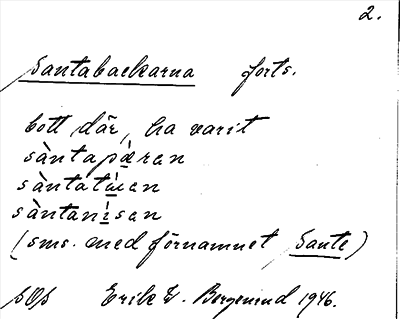 2.
Santabackarna forts.
bott där, ha varit
sàntapæ̀ren
sàntatẁen
sàntanìsan
(sms. med förnamnet Sante)
SOS Erik W. Bergvind 1946.